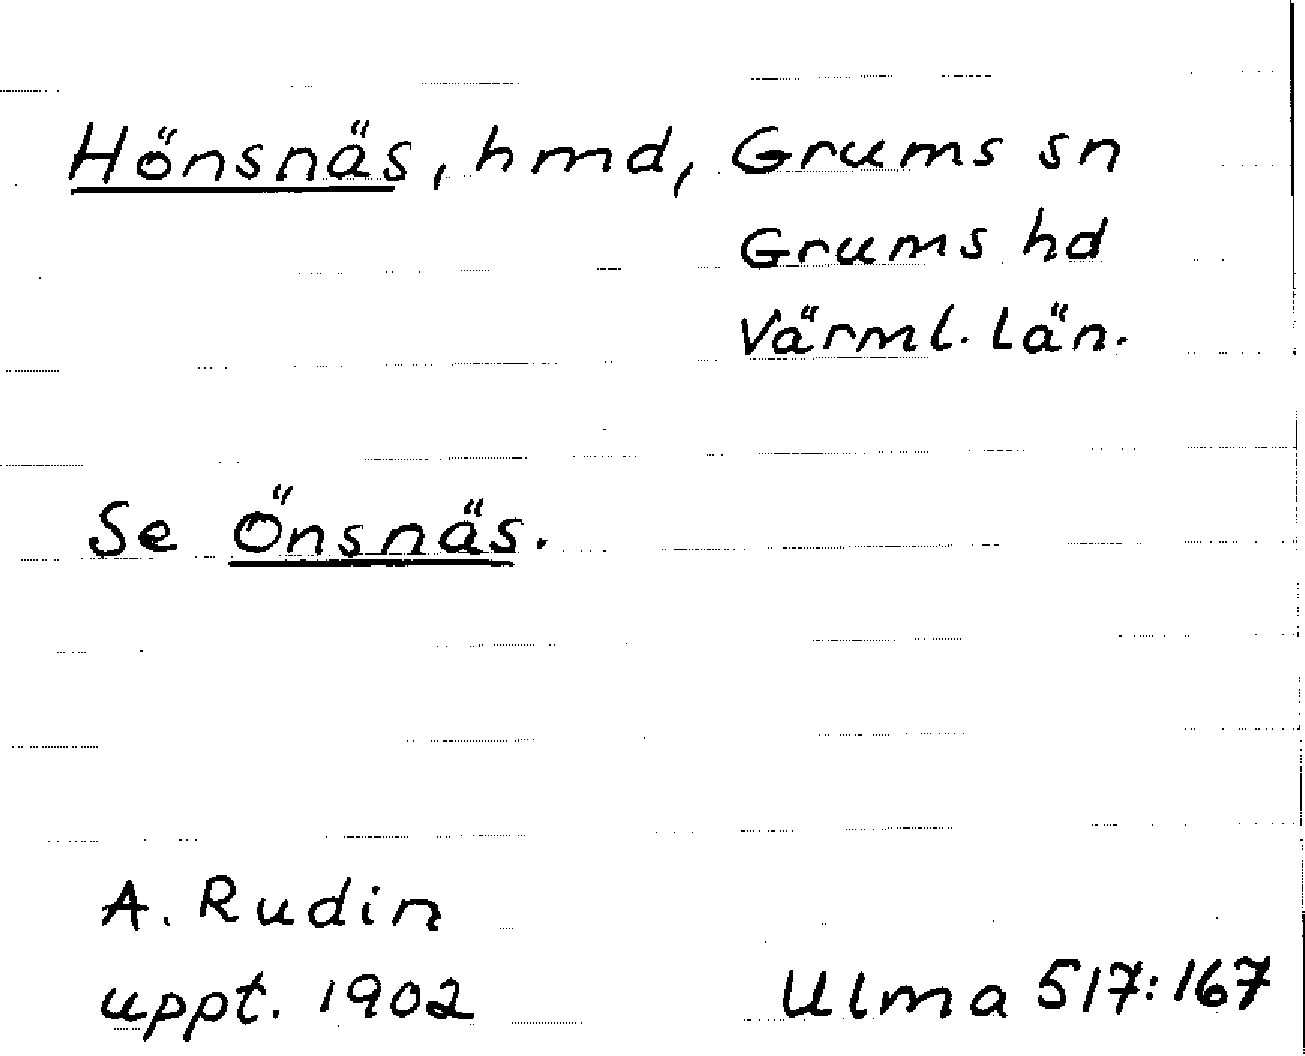 Hönsnäs, hmd, Grums sn
Grums hd
Värml. län.
Se Önsnäs.
A. Rudin
uppt. 1902
Ulma 517:167